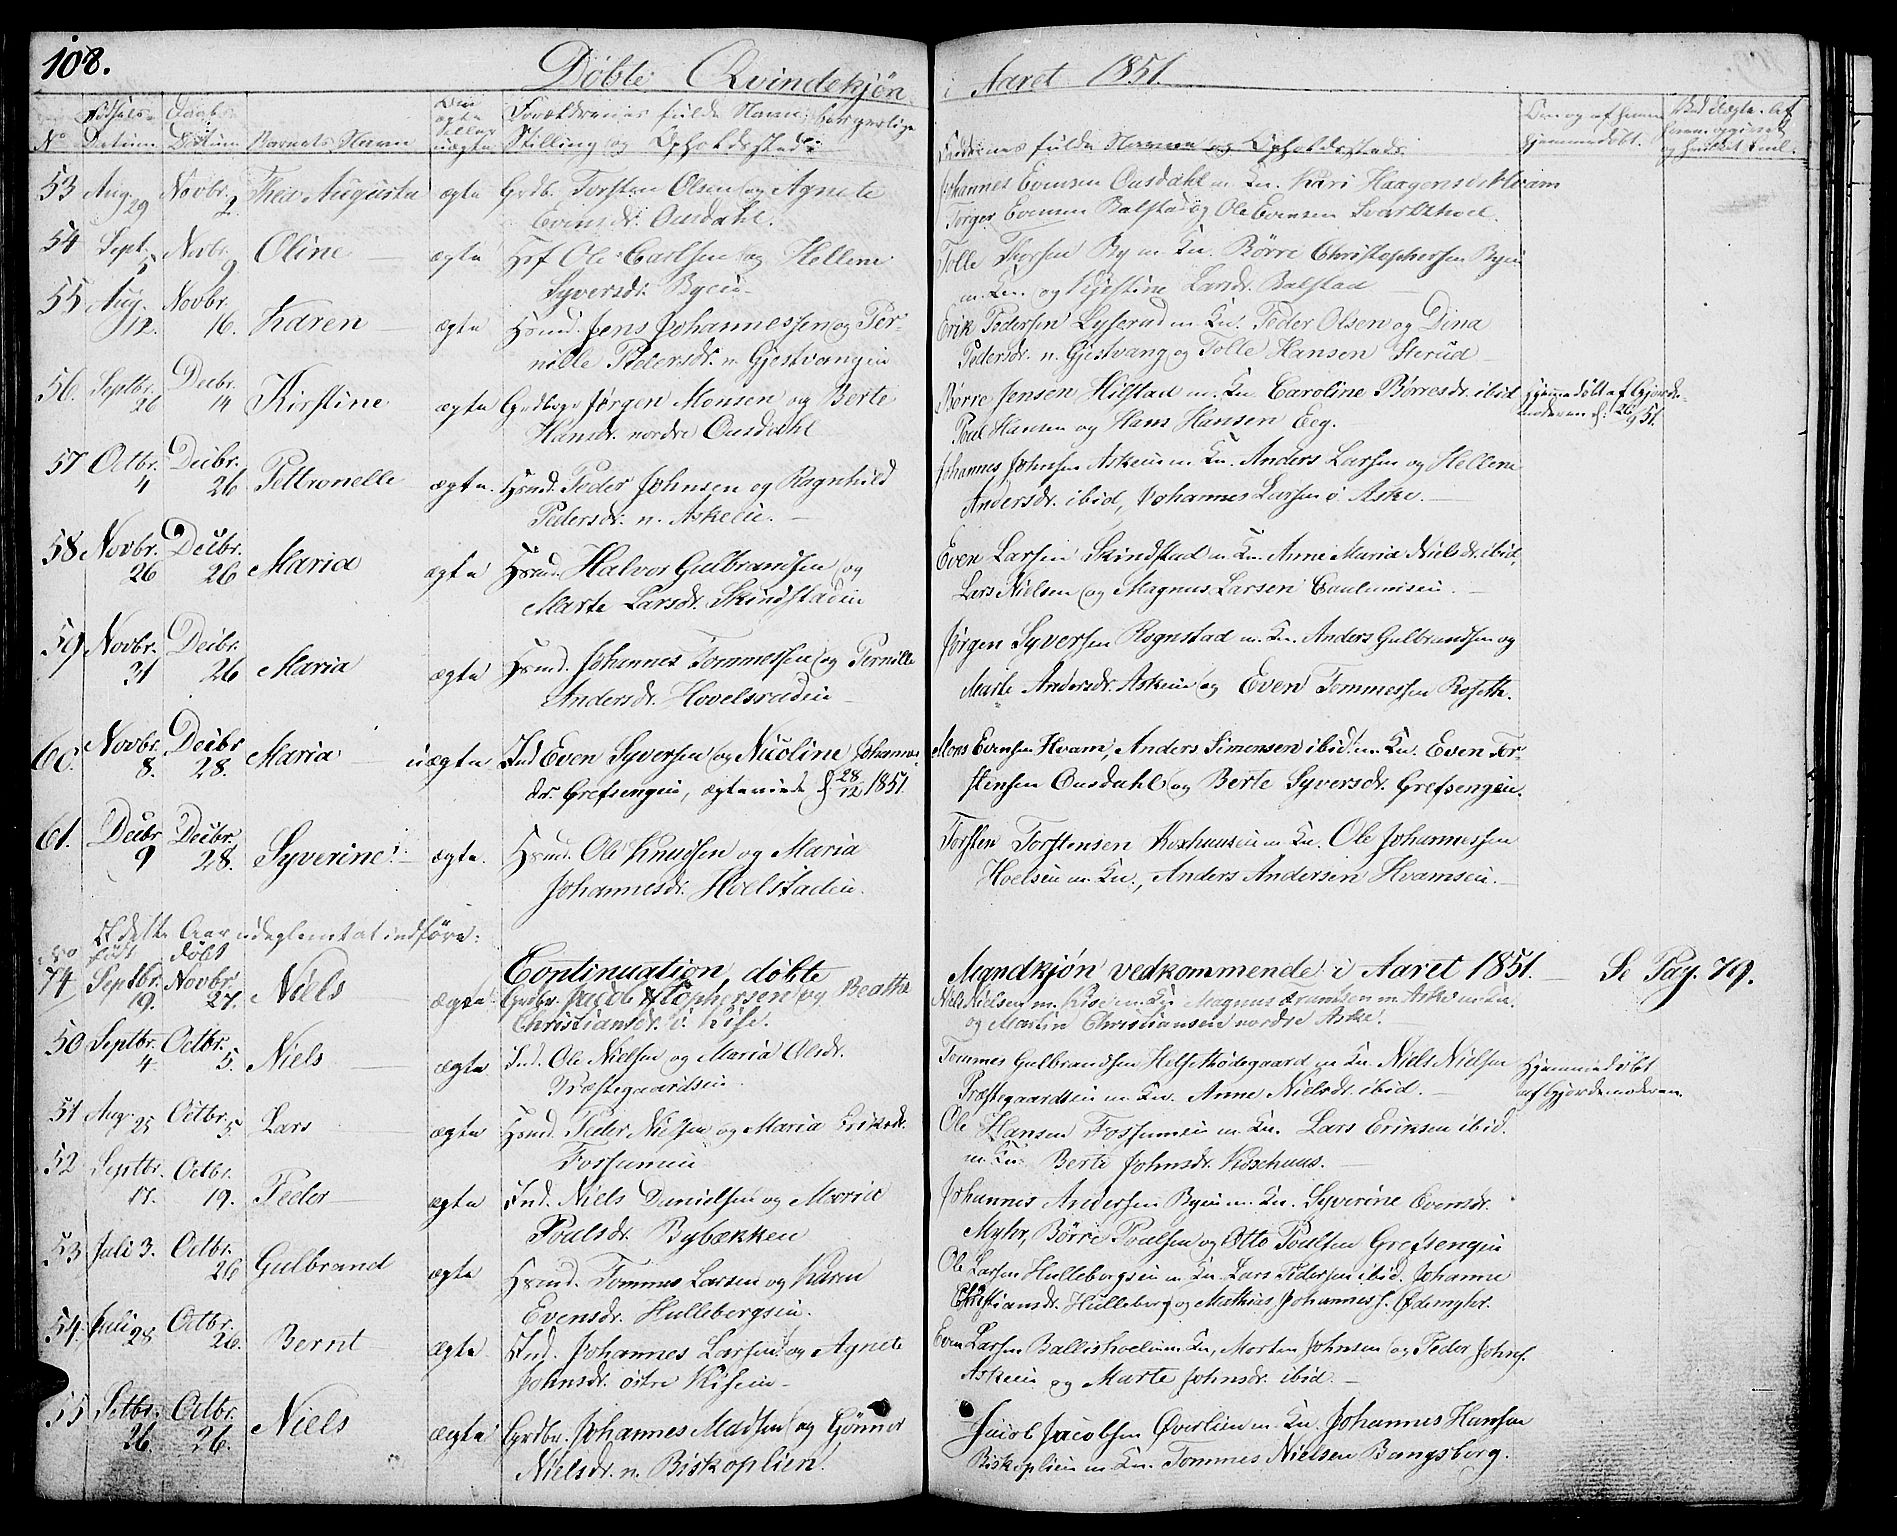 108.
Döbte Qvindekjön i Aaret 1851.
No Datum. Datum Barnets Navn ægte eller uægte Forældrenes fulde Navn, borgerlige Stilling og Opholdssted.
Faddernes fulde Navne og Opholdssteds. hjemmedöbt.
53 Aug. 29 Novbr. 2. Thea Augusta ægte Grdb. Torsten Olsen og Agnete
Evensdr. Ousdahl.
Johannes Evensen Ousdahl m. Kn. Kari Haagensd. Hvam
Torger Evensen Balstad og Ole Evensen Svartshoel.
54 Sept. 5 Novbr. 9 Oline ægte Hsf Ole Carlsen og Hellene
Syversdr. Byeie
Tolle Thorsen By m. Kn. Börre Christophersen Byeie
m. Kn. og Kjestine Larsdr. Balstad
55 Aug. 12. Novbr. 16. Karen ægte Hsmd. Jens Johannessen og Per-
nille Pedersdr. n. Gjestvangeie
Erik Pedersen Lyserud m. Kn. Peder Olsen og Dina
Pedersdr. n. Gjestvang og Tolle Hansen Sterud
56. Septbr. 26 Decbr. 14 Kirstine ægte Grdbgr Jörgen Monsen og Berte
Hansdr. nordre Ousdahl
Börre Jensen Hilstad m. Kn. Caroline Börresdr. ibid
Poul Hansen og Hans Hansen Eeg.
Hjemmedöbt af Gjorde-
moderen d: 26/9 51.
57 Octbr. 4 Decbr. 26 Pettronelle ægte. Hsmd. Peder Johnsen og Ragnhild
Pedersdr. n. Askeie.
Johannes Johnsen Askeie m. Kn. Anders Larsen og Hellene
Andersdr. ibid, Johannes Larsen ö Aske.
58 Novbr. 26 Decbr. 26 Maria ægte Hsmd. Halvor Gulbrandsen og
Marte Larsdr. Skindstadeie
Even Larsen Skindstad m. Kn. Anne Maria Nielsdr. ibid,
Lars Nielsen og Magnus Larsen
59 Novbr. 31 Decbr. 26 Maria ægte Hsmd. Johannes Tommessen og Pernille
Andersdr. Hovelsrudeie
Jörgen Syversen Rognstad m. Kn. Anders Gulbrandsen og
Marte Andersdr. Askeie og Even Tommessen Roseth.
60. Novbr. 8. Decbr 28. Maria uægte Ind Even Syversen og Nicoline Johannes-
dr. Grefsengeie, ægteviede d 28/12 1851.
Mons Evensen Hvam, Anders Simensen ibid. m. Kn. Even Tor-
stensen Ousdahl og Berte Syversdr. Grefsengeie.
61. Decbr 9 Decbr. 28. Syverine ægte. Hsmd. Ole Knudsen og Maria
Johannesdr. Hoelstadeie.
Torsten Torstensen Koxhuuseie m. Kn. Ole Johannessen
Hoelseie m. Kn., Anders Andersen Hvamseie.
I dette Aar udeglemt at indföre:
No Født döbt
Continuation, döbte Mandkjön vedkommende i Aaret 1851. Se Pag. 79.
74 Septbr. 19. Novbr. 27. Niels ægte Grdbr. Jacob Kstophersen og Beathe
Christiansdr. ö. Kise.
Niels Nielsen m. Kise m. Kn. Magnus Frantsen m. Aske m. Kn.
og Martin Christiansen nordre Aske.
50 Septbr. 4. Octbr. 5. Niels ægte Ind. Ole Nielsen og Maria Olsdr.
Præstegaardseie
Tommes Gulbrandsen Helsethödegaard m. Kn. Niels Nielsen
Præstegaardseie m. Kn. Anne Nielsdr. ibid.
Hjemmedöbt
af Gjordemoderen
51 Aug. 25 Octbr. 5. Lars ægte Hsmd. Peder Nielsen og Maria Eriksdr.
Fossumeie
Ole Hansen Fossumeie m. Kn. Lars Eriksen ibid.
m. Kn. Berte Johnsdr. Koxhuus.
52 Septbr. 17. Octbr. 19. Peder ægte Ind. Niels Danielsen og Maria
Poulsdr. Bybækken
Johannes Andersen Byeie m. Kn. Syverine Evensdr.
Myhr, Börre Poulsen og Otto Poulsen Grefsengeie
53 Juli 3. Octbr. 26 Gulbrand ægte Hsmd. Tommes Larsen og Karen
Evensdr. Hullebergseie.
Ole Larsen Hullebergseie m. Kn. Lars Pedersen ibid. Johanne
Christiansdr. Hulleberg og Mathias Johanness. Ødemyhr.
54 Juli 28 Octbr. 26. Bernt ægte Ind. Johannes Larsen og Agnete
Johnsdr. östre Kiseie
Even Larsen Ballishoel m. Kn, Morten Johnsen og Peder Johns.
Askeie og Marte Johnsdr. ibid.
55 Setbr. 26 Octbr. 26. Niels ægte Grdbr. Johannes Madsen og Gönner
Nielsdr. n. Biskoplien.
Jacob Jacobsen Överlien m. Kn. Johannes Hansen
Biskoplien m. Kn. Tommes Nielsen Bangsberg.